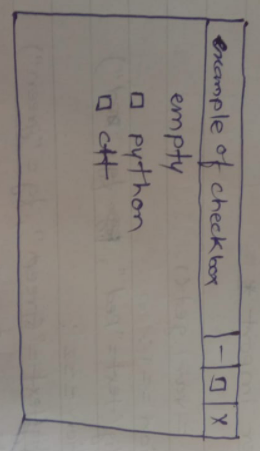 example of checkbox - □ X
empty
□ python
□ c++